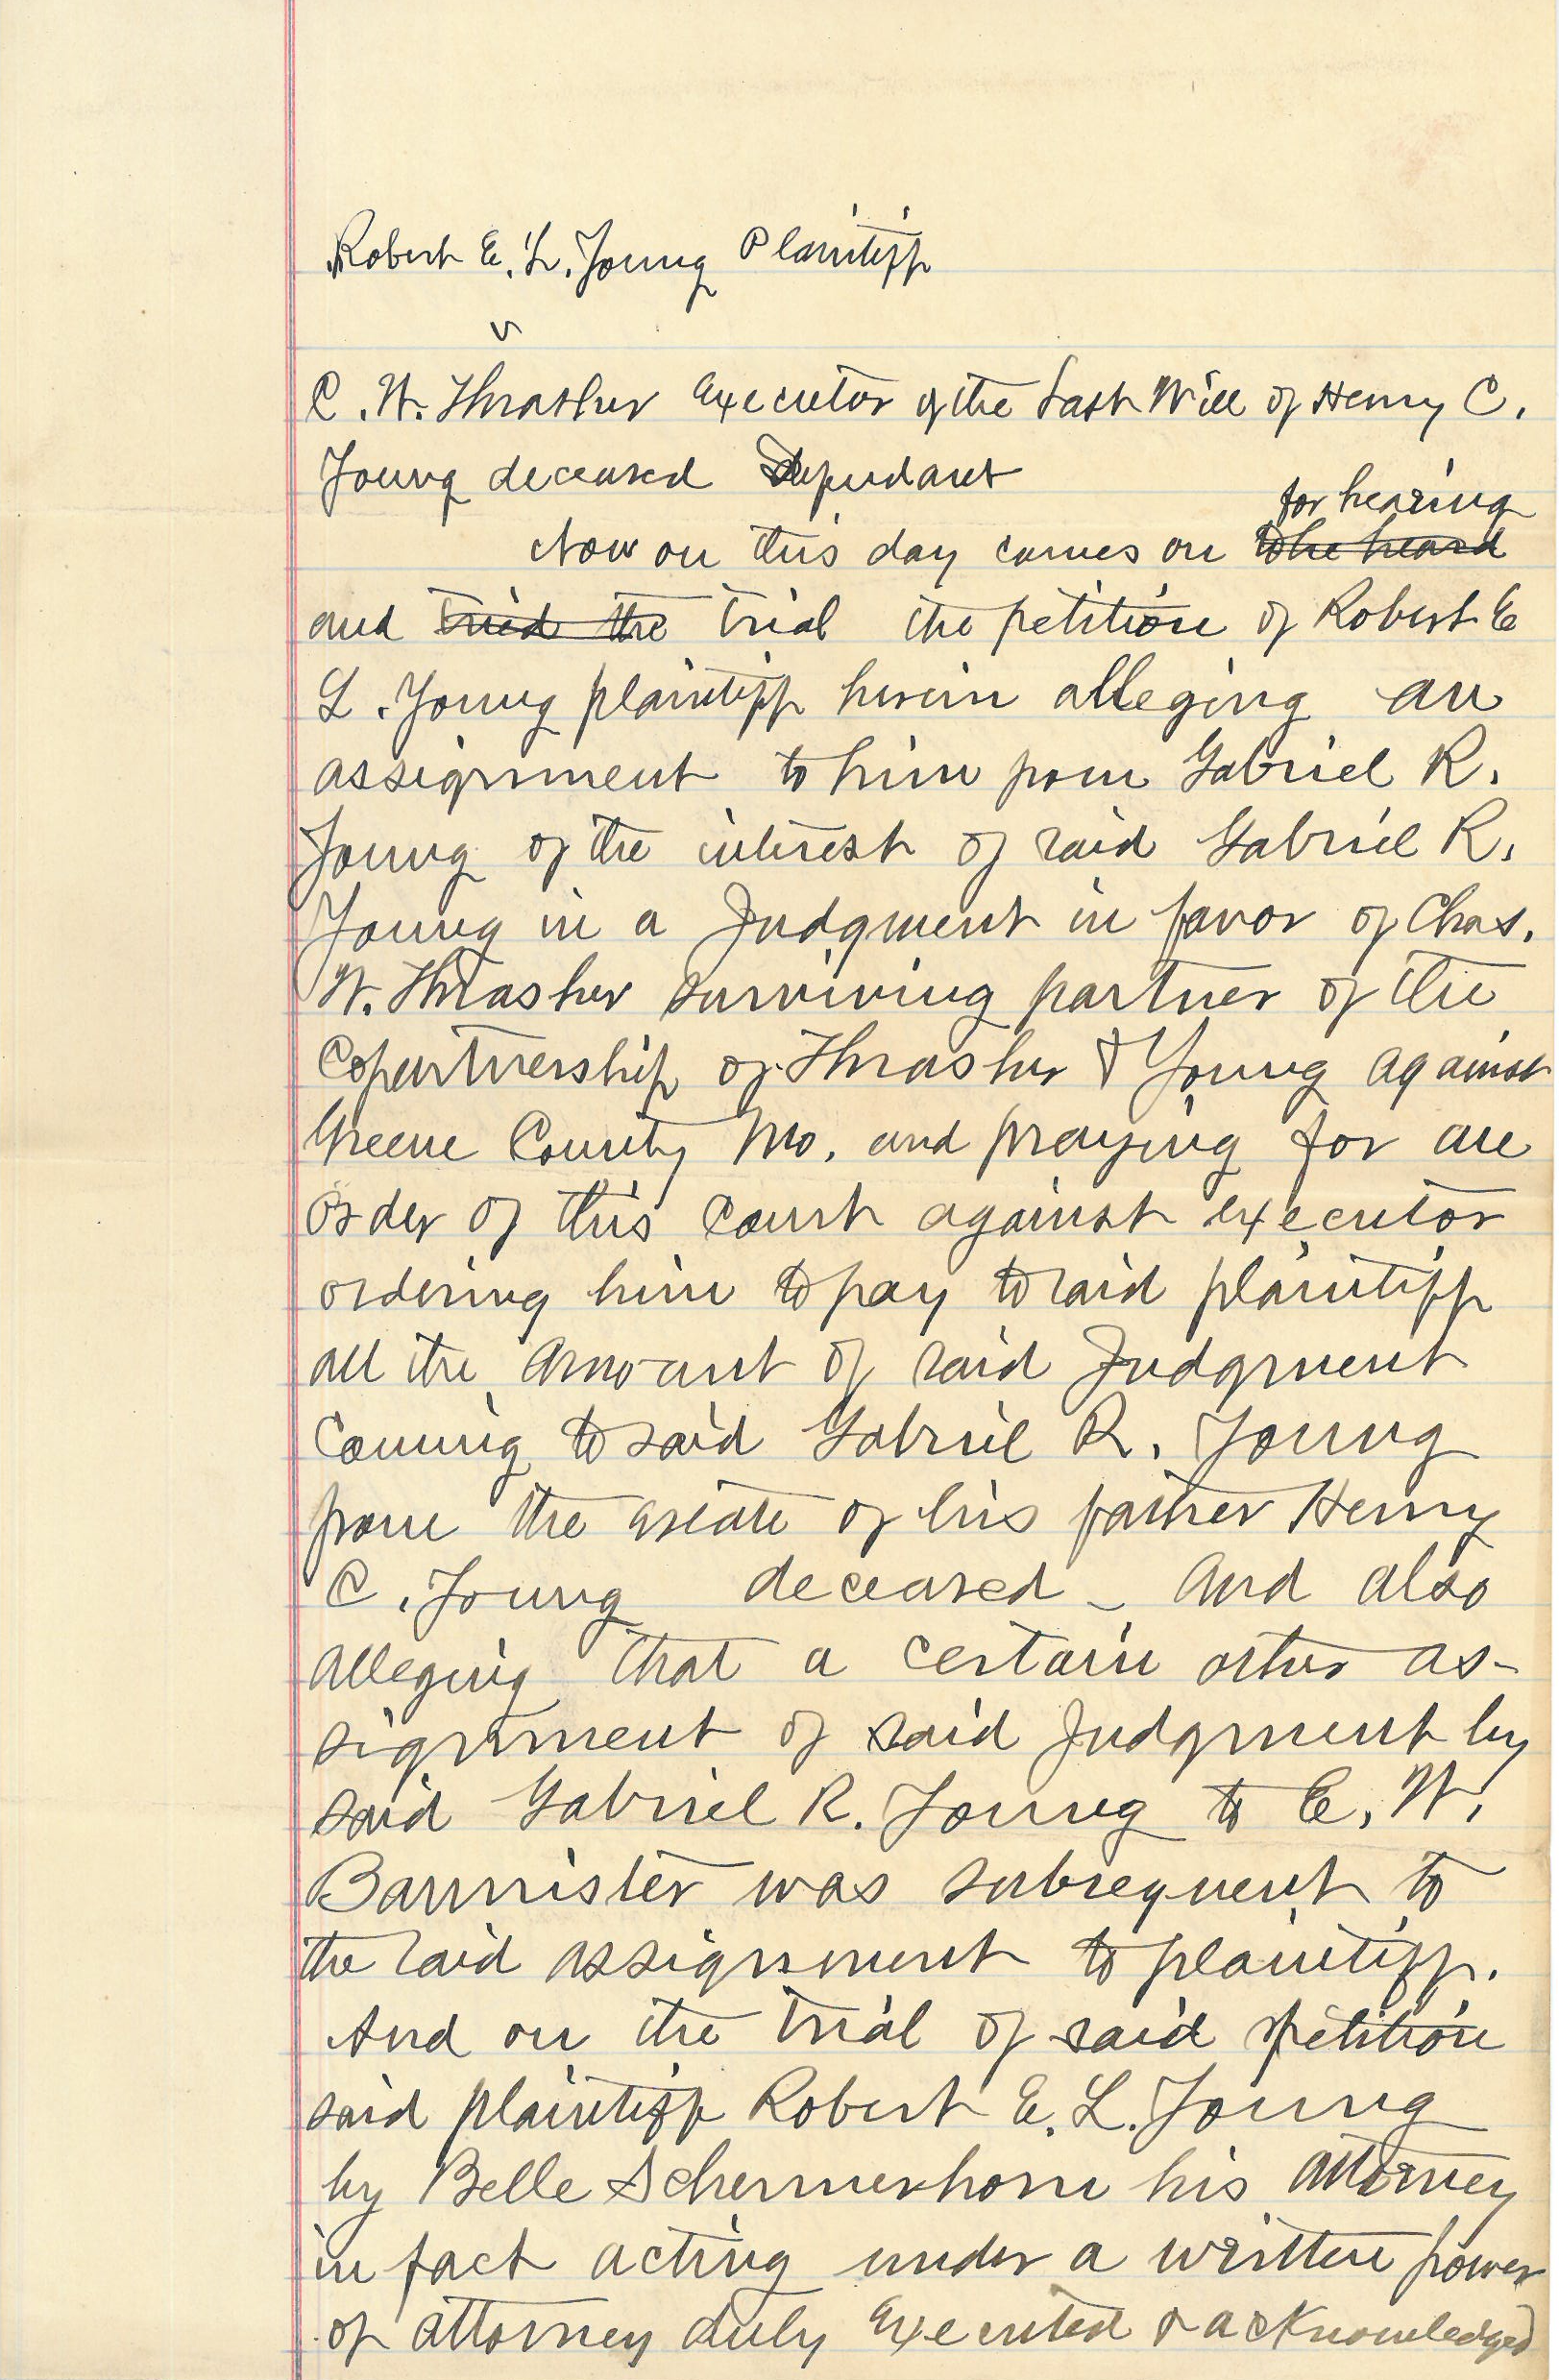 Robert E. L. Young Plaintiff
v
C. W. Thrasher Executor of the Last Will of Henry C.
Young deceased Defendant
for hearing
Now on this day comes on to be heard
and tried the trial the petition of Robert E
L. Young plaintiff herein alleging an
assignment to him from Gabriel R.
Young of the interest of said Gabriel R.
Young in a Judgment in favor of Chas.
W. Thrasher surviving partner of the
Copartnership of Thrasher & Young against
Greene County Mo. and praying for an
order of this court against executor
ordering him to pay to said plaintiff
all the amount of said Judgment
coming to said Gabriel R. Young
from the estate of his father Henry
C. Young deceased - And also
alleging that a certain other as-
signment of said Judgment by
said Gabriel R. Young to C. W.
Bannister was subsequent to
the said assignment to plaintiff.
And on the trial of said petition
said plaintiff Robert E. L. Young
by Belle Schermerhorn his attorney
in fact acting under a written power
of attorney duly executed & acknowledged